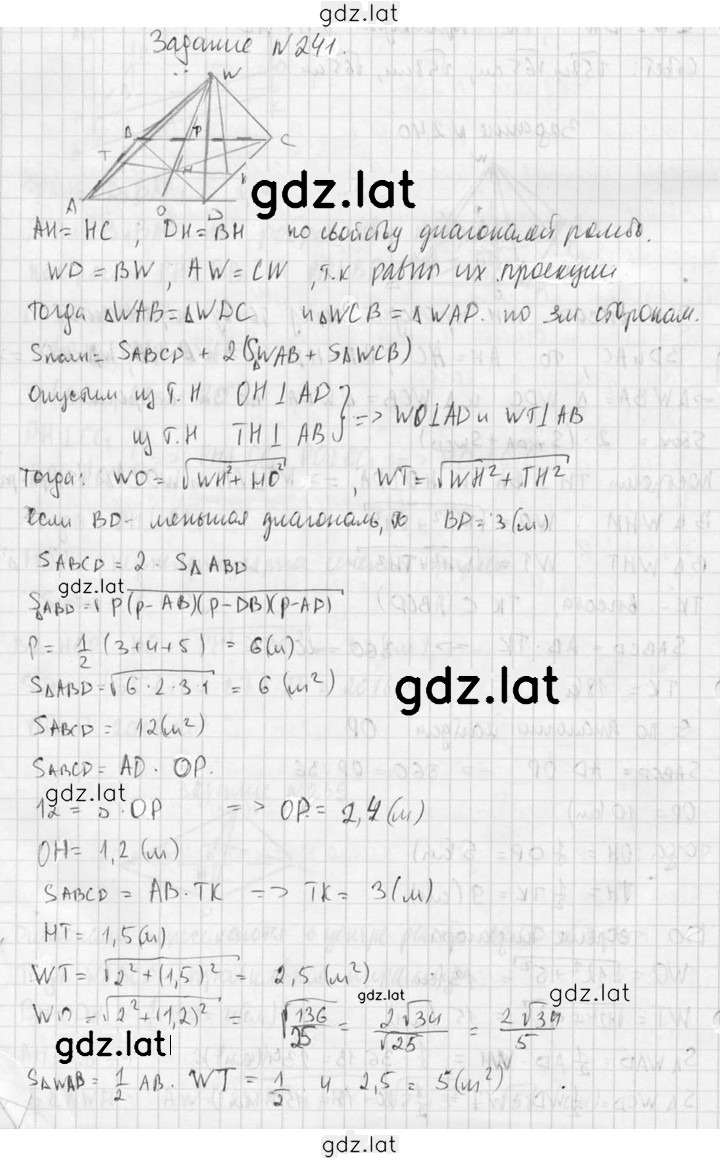 gdz.lat
Задание №241.
W
B P C
T H K
A O D
gdz.lat
AH = HC ; DH = BH по свойству диагоналей ромба.
WD = BW, AW = CW, т.к равны их проекции.
Тогда △WAB = △WDC и △WCB = △WAD. по 3м сторонам.
Sполн = SABCD + 2(S△WAB + S△WCB)
Опустим из т. H OH ⊥ AD
из т. H TH ⊥ AB } => WO ⊥ AD и WT ⊥ AB
Тогда: WO = √WH² + HO² , WT = √WH² + TH²
Если BD - меньшая диагональ, то BD = 3 (м)
SABCD = 2 · S△ABD
gdz.lat
S△ABD = √p(p-AB)(p-DB)(p-AD)
P = 1/2 (3+4+5) = 6(м)
gdz.lat
S△ABD = √6·2·3·1 = 6 (м²)
SABCD = 12(м²)
SABCD = AD · OP.
gdz.lat
12 = 5 · OP => OP = 2,4 (м)
OH = 1,2 (м)
SABCD = AB · TK => TK = 3 (м)
HT = 1,5(м)
WT = √2² + (1,5)² = 2,5 (м²)
gdz.lat
WO = √2² + (1,2)² = √136/25 = 2√34/√25 = 2√34/5
gdz.lat
S△WAB = 1/2 AB · WT = 1/2 · 4 · 2,5 = 5(м²)
gdz.lat